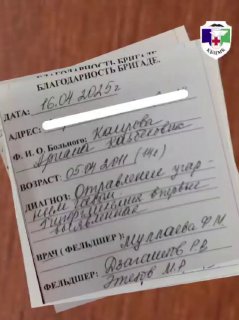 БЛАГОДАРНОСТЬ БРИГАДЕ.
БЛАГОДАРНОСТЬ БРИГАДЕ.
ДАТА: 16.04 2025г
АДРЕС:
Ф. И. О. Больного: Камурова
Ариана
ВОЗРАСТ: 05.04 2011 (14л)
ДИАГНОЗ: Отравление угар-
ным газом
впервые
выявленная
ВРАЧ ( ФЕЛЬДШЕР ): Муллаева Ф М
ФЕЛЬДШЕР: Дзагаштов Р.В
Этезов М.Р